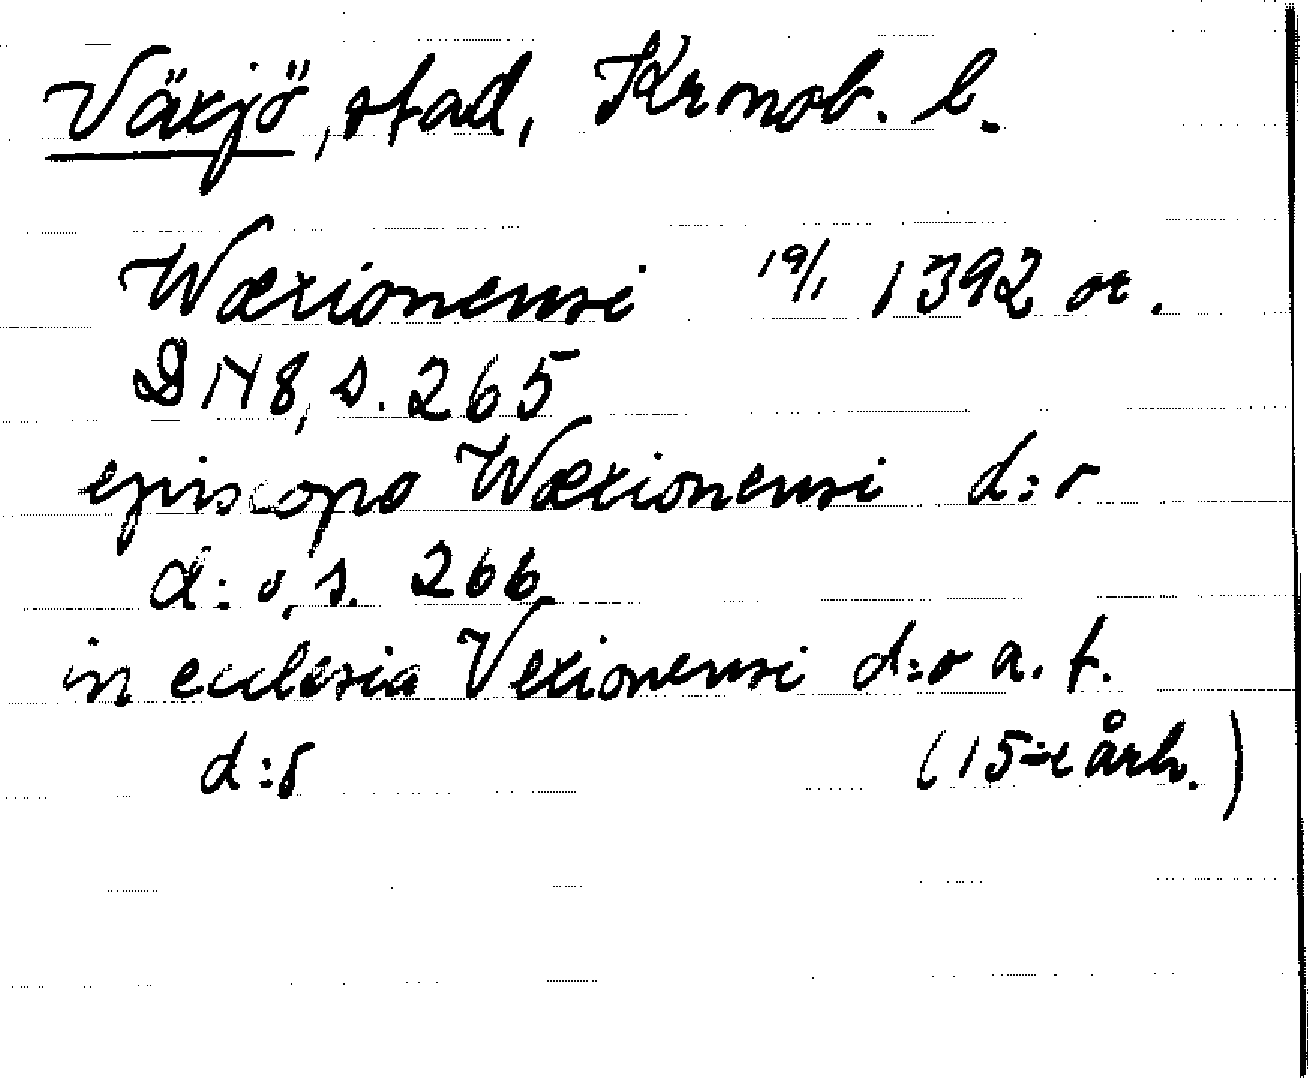 Växjö, stad, Kronob. l.
Wæxionensi 19/1 1392 or.
DN 8, s. 265
episcopo Wæxionensi d:o
d:o, s. 266
in ecclesia Vexionensi d:o a. f.
d:o (15-e årh.)